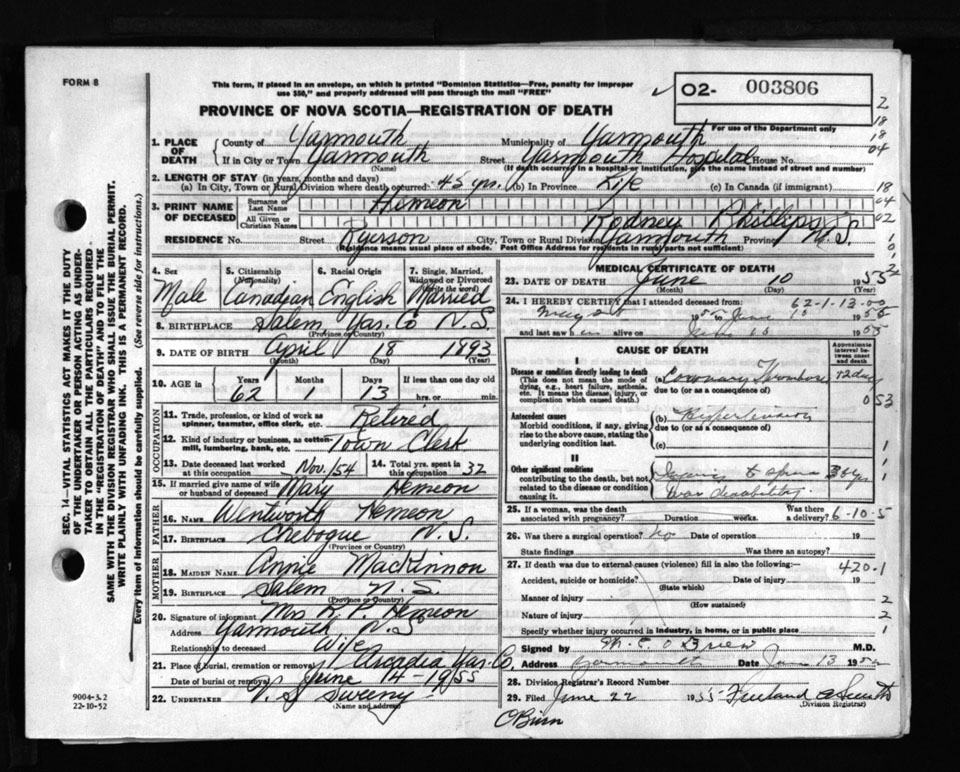 FORM 8
This form, if placed in an envelope, on which is printed "Dominion Statistics—Free, penalty for improper
use $50," and properly addressed will pass through the mail "FREE"
PROVINCE OF NOVA SCOTIA—REGISTRATION OF DEATH
O2- 003806
For use of the Department only
2
18
18
04
1. PLACE OF DEATH
County of Yarmouth Municipality of Yarmouth
If in City or Town Yarmouth Street Yarmouth Hospital House No.
(Name) (If death occurred in a hospital or institution, give the name instead of street and number)
2. LENGTH OF STAY (in years, months and days)
(a) In City, Town or Rural Division where death occurred 45 yrs. (b) In Province Life (c) In Canada (if immigrant) 18
3. PRINT NAME OF DECEASED
Surname or Last Name Hemeon 04
All Given or Christian Names Rodney Phillips 02
RESIDENCE No. Street Ryerson City, Town or Rural Division Yarmouth Province N.S.
(Residence means usual place of abode. Post Office Address for residents in rural parts not sufficient)
4. Sex
Male
5. Citizenship (Nationality)
Canadian
6. Racial Origin
English
7. Single, Married, Widowed or Divorced (Write the word)
Married
8. BIRTHPLACE Salem Yar. Co N.S.
(Province or Country)
9. DATE OF BIRTH April 18 1893
(Month) (Day) (Year)
10. AGE in Years Months Days If less than one day old
62 13 hrs. or min.
OCCUPATION
11. Trade, profession, or kind of work as spinner, teamster, office clerk, etc. Retired
12. Kind of industry or business, as cotton-mill, lumbering, bank, etc. Town Clerk
13. Date deceased last worked at this occupation Nov. '54 14. Total yrs. spent in this occupation 32
15. If married give name of wife or husband of deceased Mary Hemeon
FATHER
16. NAME Wentworth Hemeon
17. BIRTHPLACE Chebogue N.S.
(Province or Country)
MOTHER
18. MAIDEN NAME Annie MacKinnon
19. BIRTHPLACE Salem N.S.
(Province or Country)
20. Signature of informant Mrs R. P. Hemeon
Address Yarmouth N.S
Relationship to deceased Wife
21. Place of burial, cremation or removal Arcadia Yar. Co.
Date of burial or removal June 14-1955
22. UNDERTAKER V. S. Sweeny
(Name and address)
MEDICAL CERTIFICATE OF DEATH
23. DATE OF DEATH June 10 1955
(Month) (Day) (Year)
24. I HEREBY CERTIFY that I attended deceased from 62-1-13-00
and last saw h alive on 1955
CAUSE OF DEATH
Approximate interval between onset and death
I
Disease or condition directly leading to death
(This does not mean the mode of dying, e.g., heart failure, asthenia, etc. It means the disease, injury, or complication which caused death.)
(a) Coronary Thrombosis
due to (or as a consequence of)
053
Antecedent causes
Morbid conditions, if any, giving rise to the above cause, stating the underlying condition last.
(b) Hypertension
due to (or as a consequence of)
(c)
II
Other significant conditions contributing to the death, but not related to the disease or condition causing it.
Injury to spine
War disability.
25. If a woman, was the death associated with pregnancy? Duration weeks. Was there a delivery? 6-10-5
26. Was there a surgical operation? No Date of operation 19
State findings Was there an autopsy?
27. If death was due to external causes (violence) fill in also the following: 420.1
Accident, suicide or homicide? Date of injury 19
(State which)
Manner of injury 2
(How sustained)
Nature of injury 2
Specify whether injury occurred in industry, in home, or in public place 1
Signed by M.C. O'Brien M.D.
Address Yarmouth Date June 13 19
28. Division Registrar's Record Number
29. Filed June 22 1955
(Division Registrar)
O'Brien
SEC. 14—VITAL STATISTICS ACT MAKES IT THE DUTY
OF THE UNDERTAKER OR PERSON ACTING AS UNDER-
TAKER TO OBTAIN ALL THE PARTICULARS REQUIRED
IN THE "REGISTRATION OF DEATH" AND TO FILE THE
SAME WITH THE DIVISION REGISTRAR WHO SHALL ISSUE THE BURIAL PERMIT.
WRITE PLAINLY WITH UNFADING INK. THIS IS A PERMANENT RECORD.
Every item of information should be carefully supplied. (See reverse side for instructions.)
9004-3.2
22-10-52